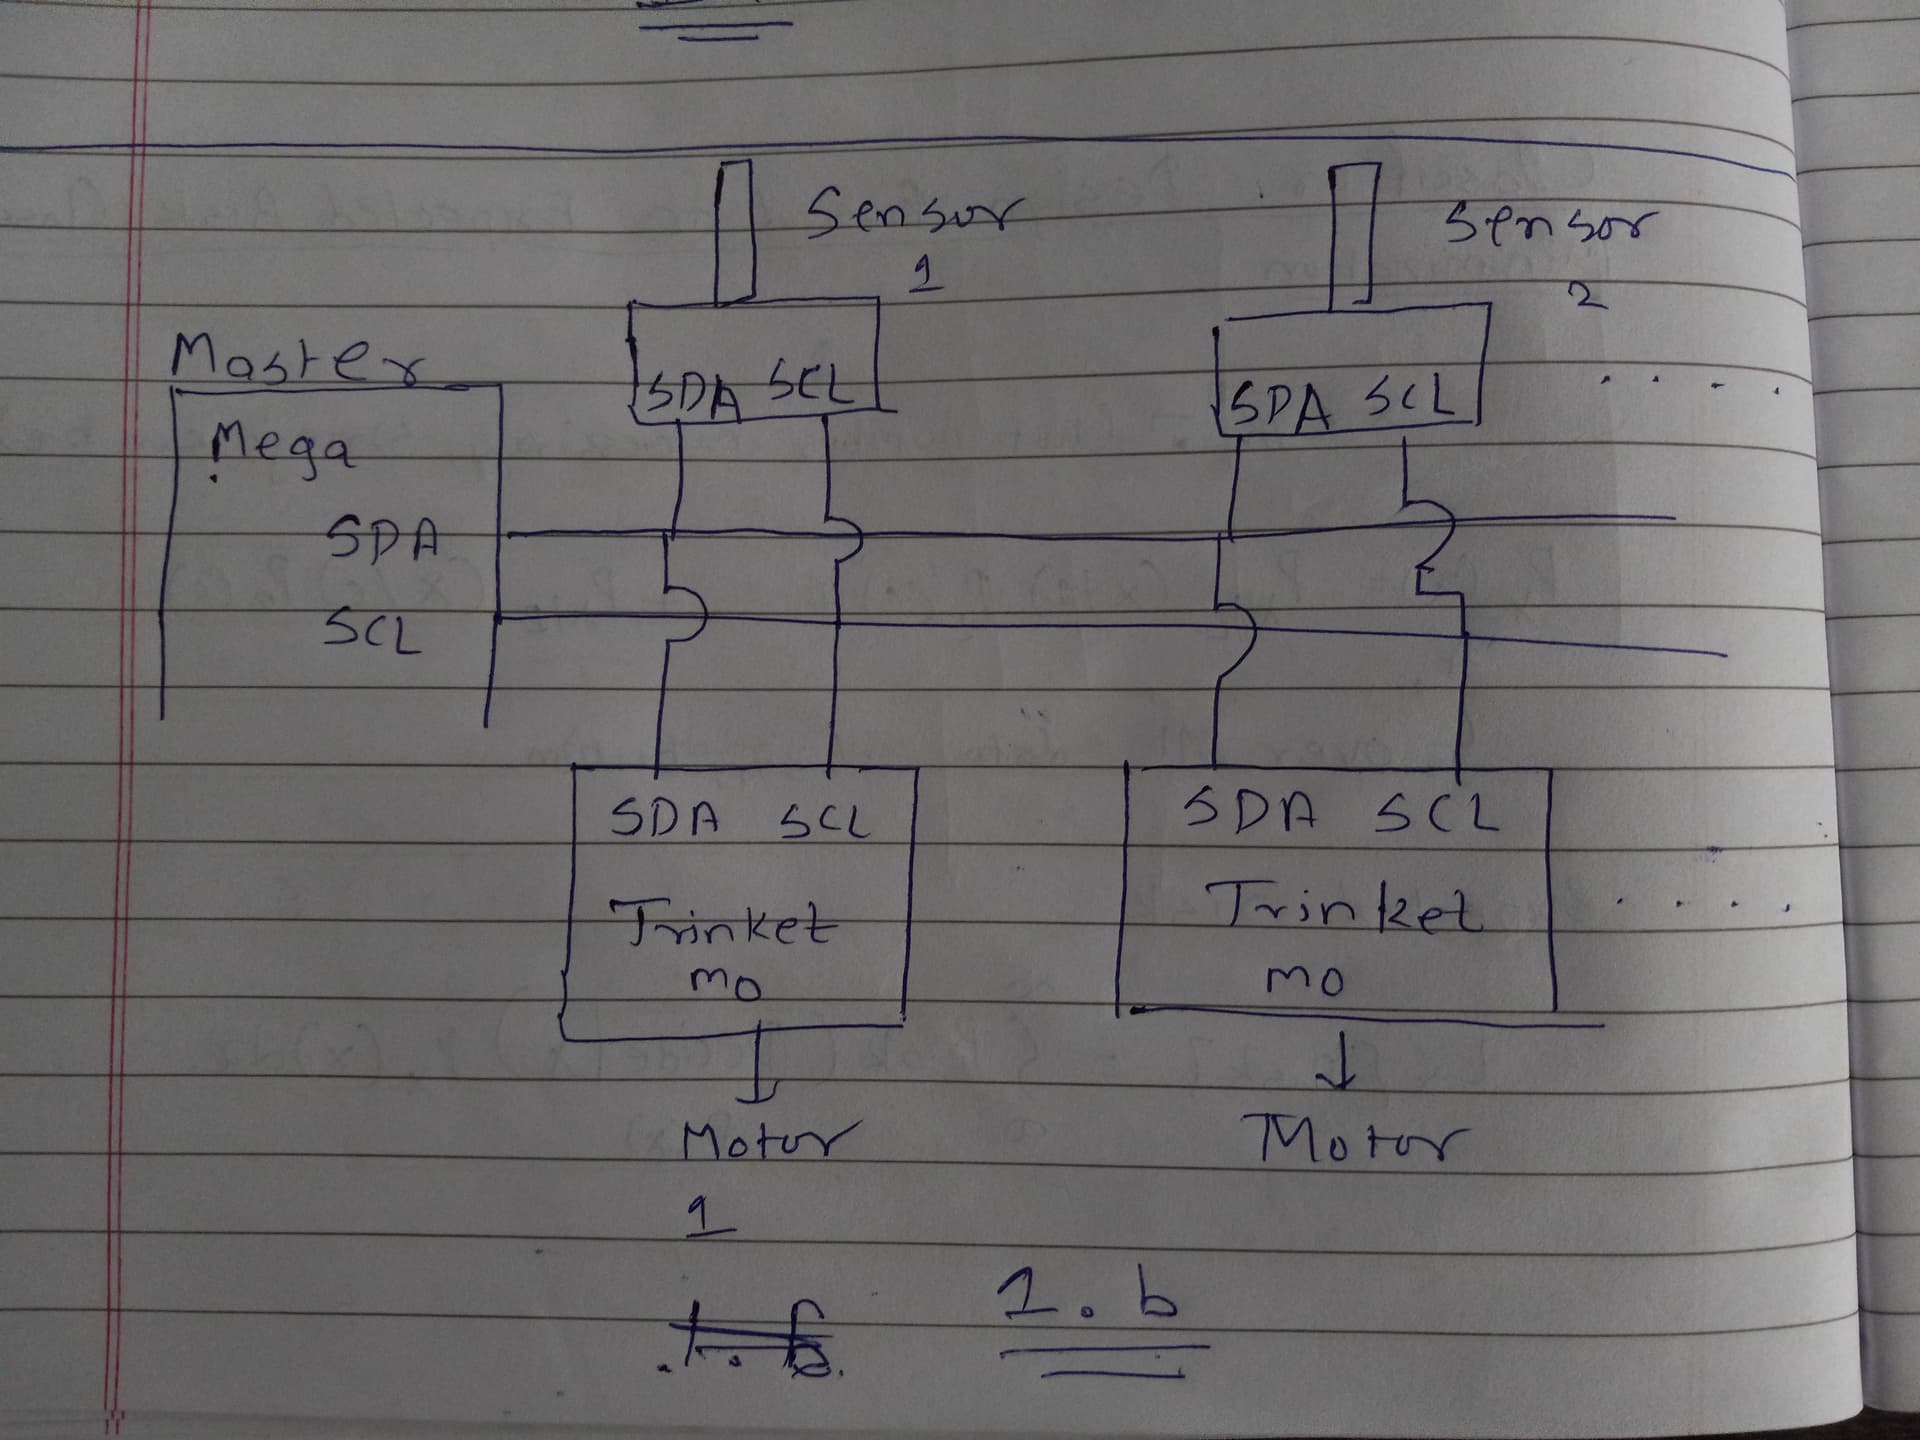 Sensor
1
Sensor
2
Master
Mega
SDA
SCL
SDA SCL
SDA SCL
. . . .
SDA SCL
Trinket
mo
Motor
1
SDA SCL
Trinket
mo
. . . .
Motor
1.b